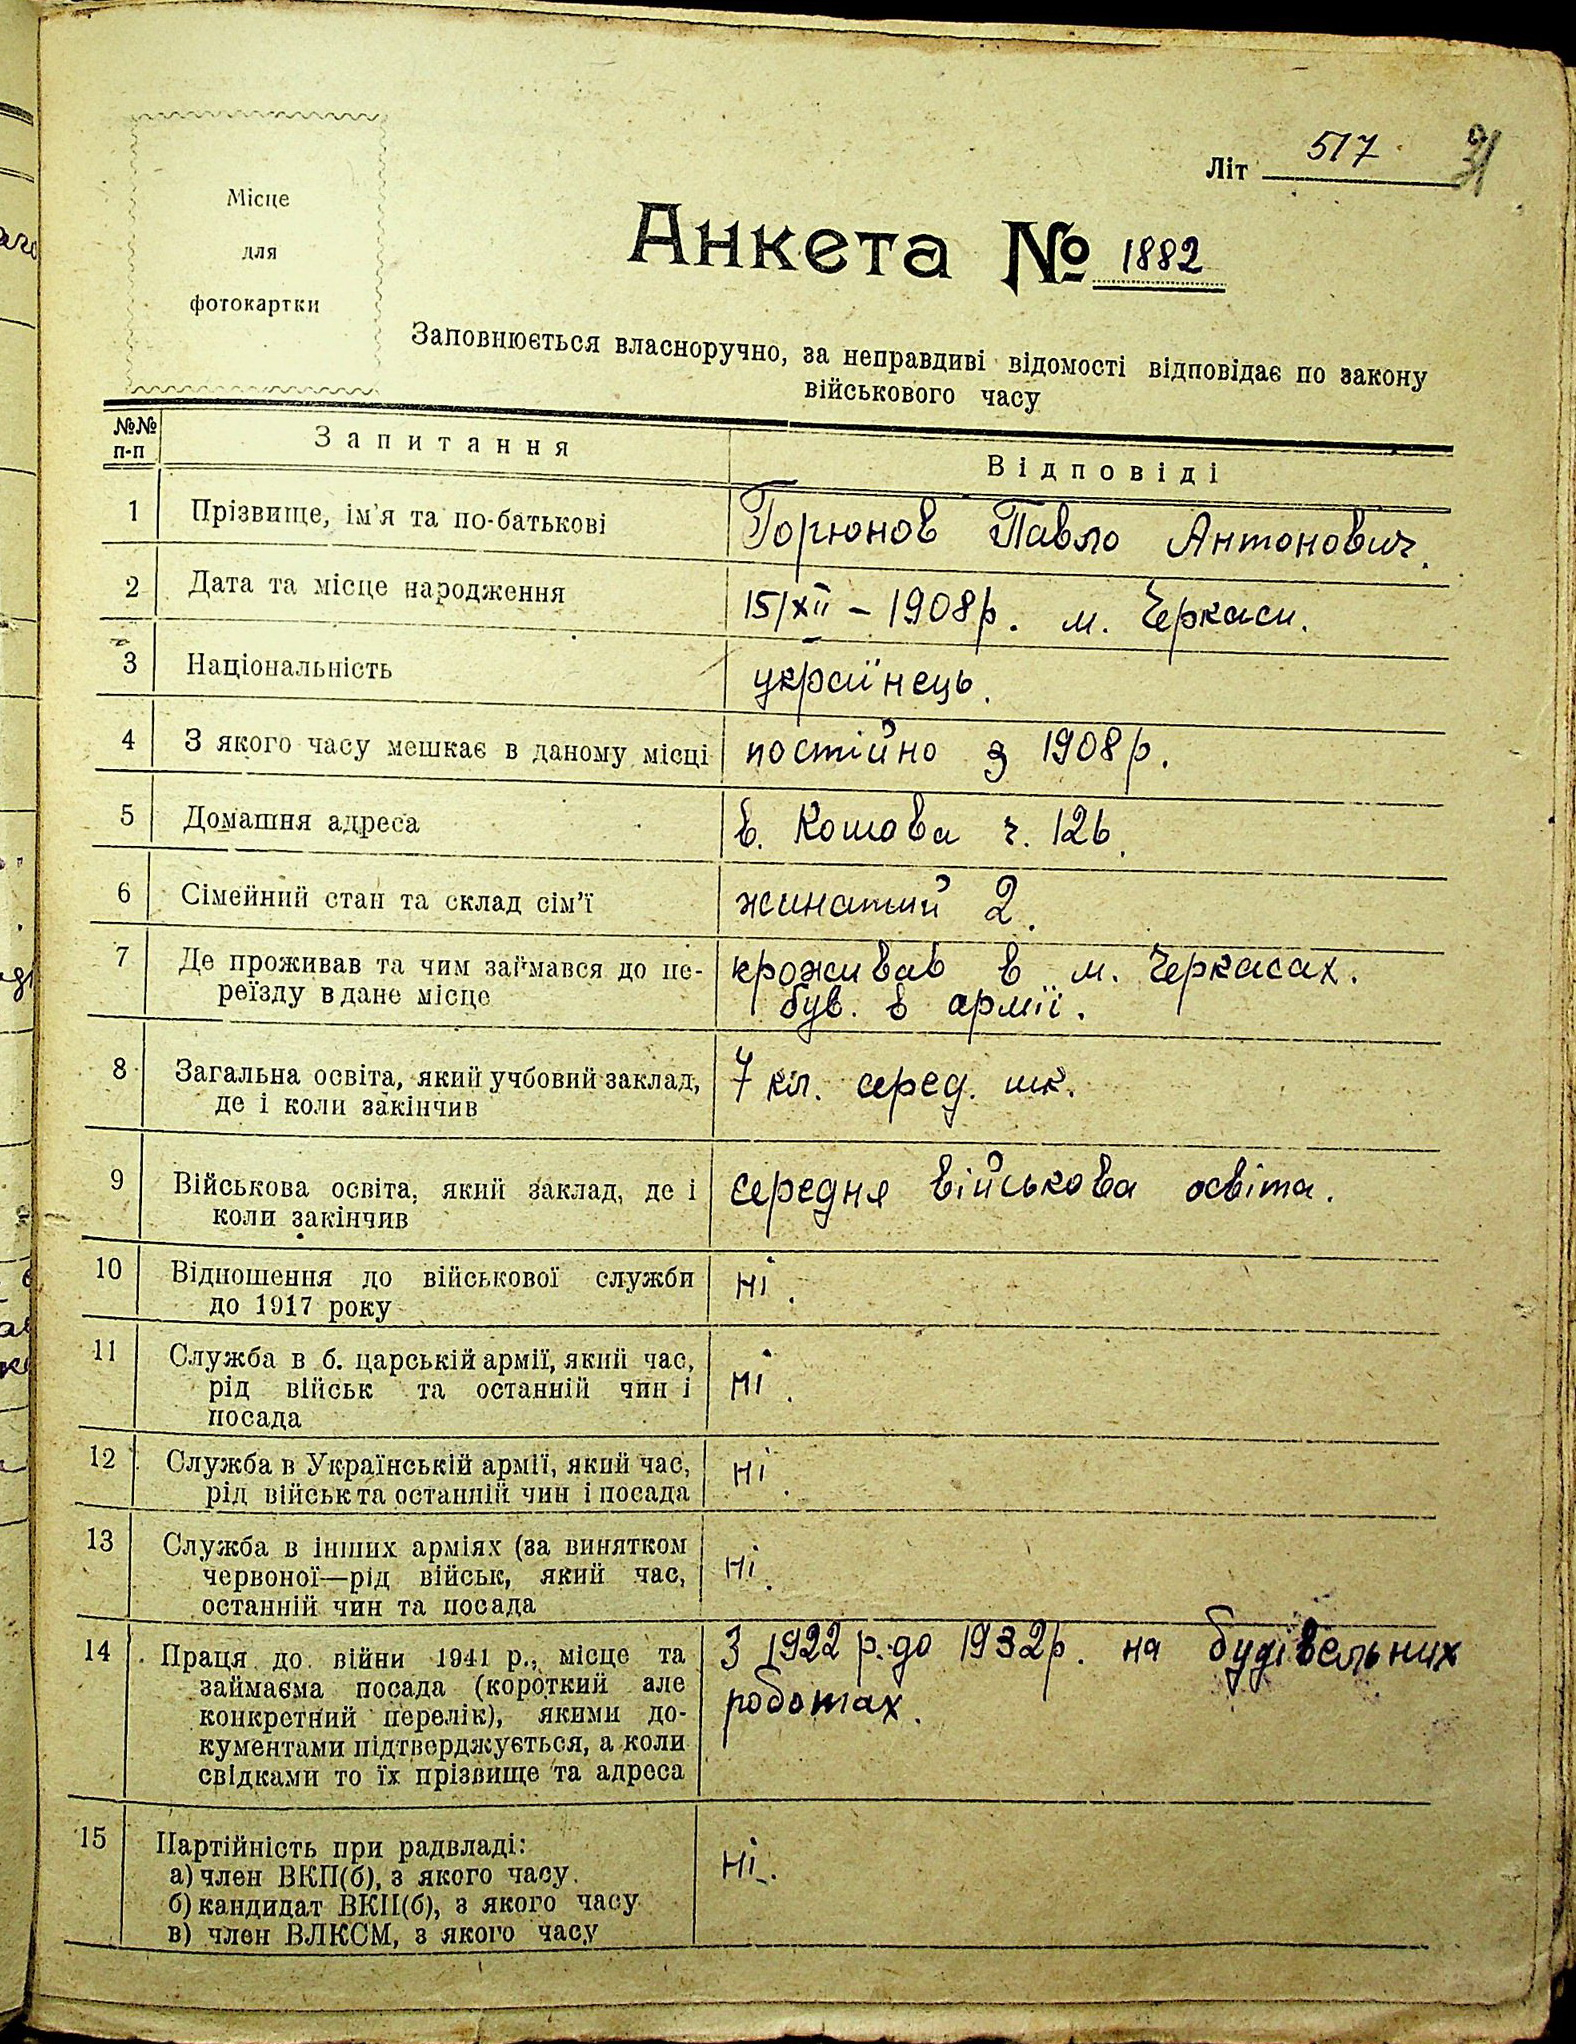 Літ 517
Місце
для
фотокартки
Анкета № 1882
Заповнюється власноручно, за неправдиві відомості відповідає по закону
військового часу
№№ п-п Запитання Відповіді
1 Прізвище, ім'я та по-батькові Горюнов Павло Антонович.
2 Дата та місце народження 15/XII – 1908 р. м. Черкаси.
3 Національність українець.
4 З якого часу мешкає в даному місці постійно з 1908 р.
5 Домашня адреса в. Кошова ч. 126.
6 Сімейний стан та склад сім'ї жинатий 2.
7 Де проживав та чим займався до пе- проживав в м. Черкасах.
реїзду в дане місце був. в армії.
8 Загальна освіта, який учбовий заклад, 7 кл. серед. шк.
де і коли закінчив
9 Військова освіта, який заклад, де і середня військова освіта.
коли закінчив
10 Відношення до військової служби ні.
до 1917 року
11 Служба в б. царській армії, який час, ні.
рід військ та останній чин і
посада
12 Служба в Українській армії, який час, ні.
рід військ та останній чин і посада
13 Служба в інших арміях (за винятком ні.
червоної—рід військ, який час,
останній чин та посада
14 Праця до війни 1941 р., місце та З 1922 р. до 1932 р. на будівельних
займаєма посада (короткий але роботах.
конкретний перелік), якими до-
кументами підтверджується, а коли
свідками то їх прізвище та адреса
15 Партійність при радвладі: ні.
а) член ВКП(б), з якого часу.
б) кандидат ВКП(б), з якого часу
в) член ВЛКСМ, з якого часу